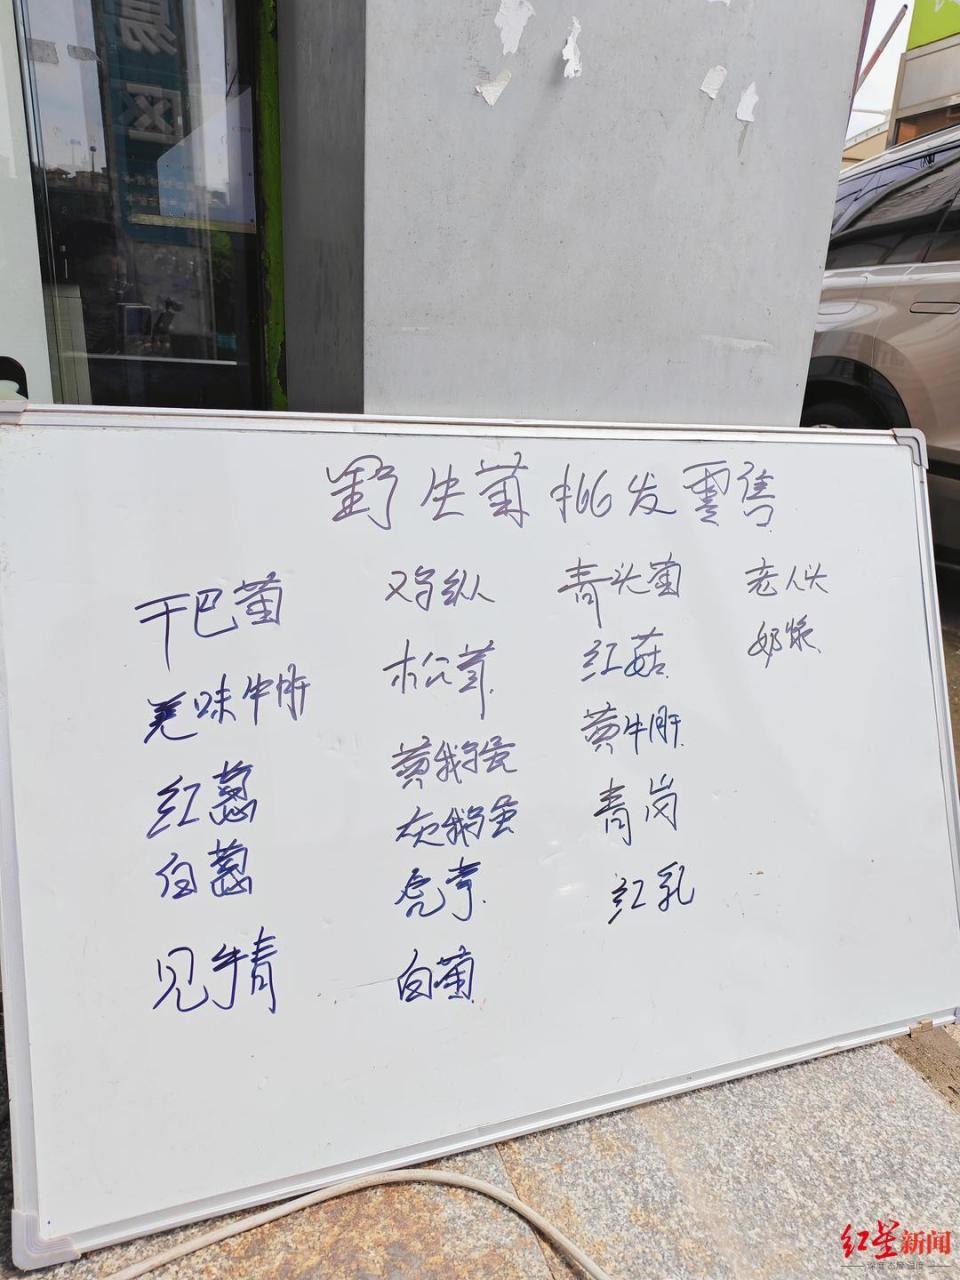 易
区
野生菌批发零售
干巴菌
美味牛肝
红葱
白葱
见手青
鸡纵
松茸
黄鹅蛋
灰鹅蛋
虎掌
白菌
青头菌
红菇
黄牛肝
青岗
红乳
老人头
奶浆
红星新闻
深度态度温度